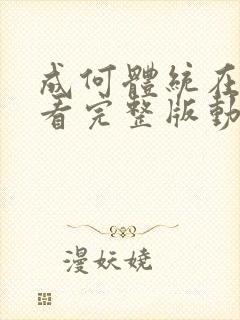 成何體統在
看完整版動
漫妖嬈